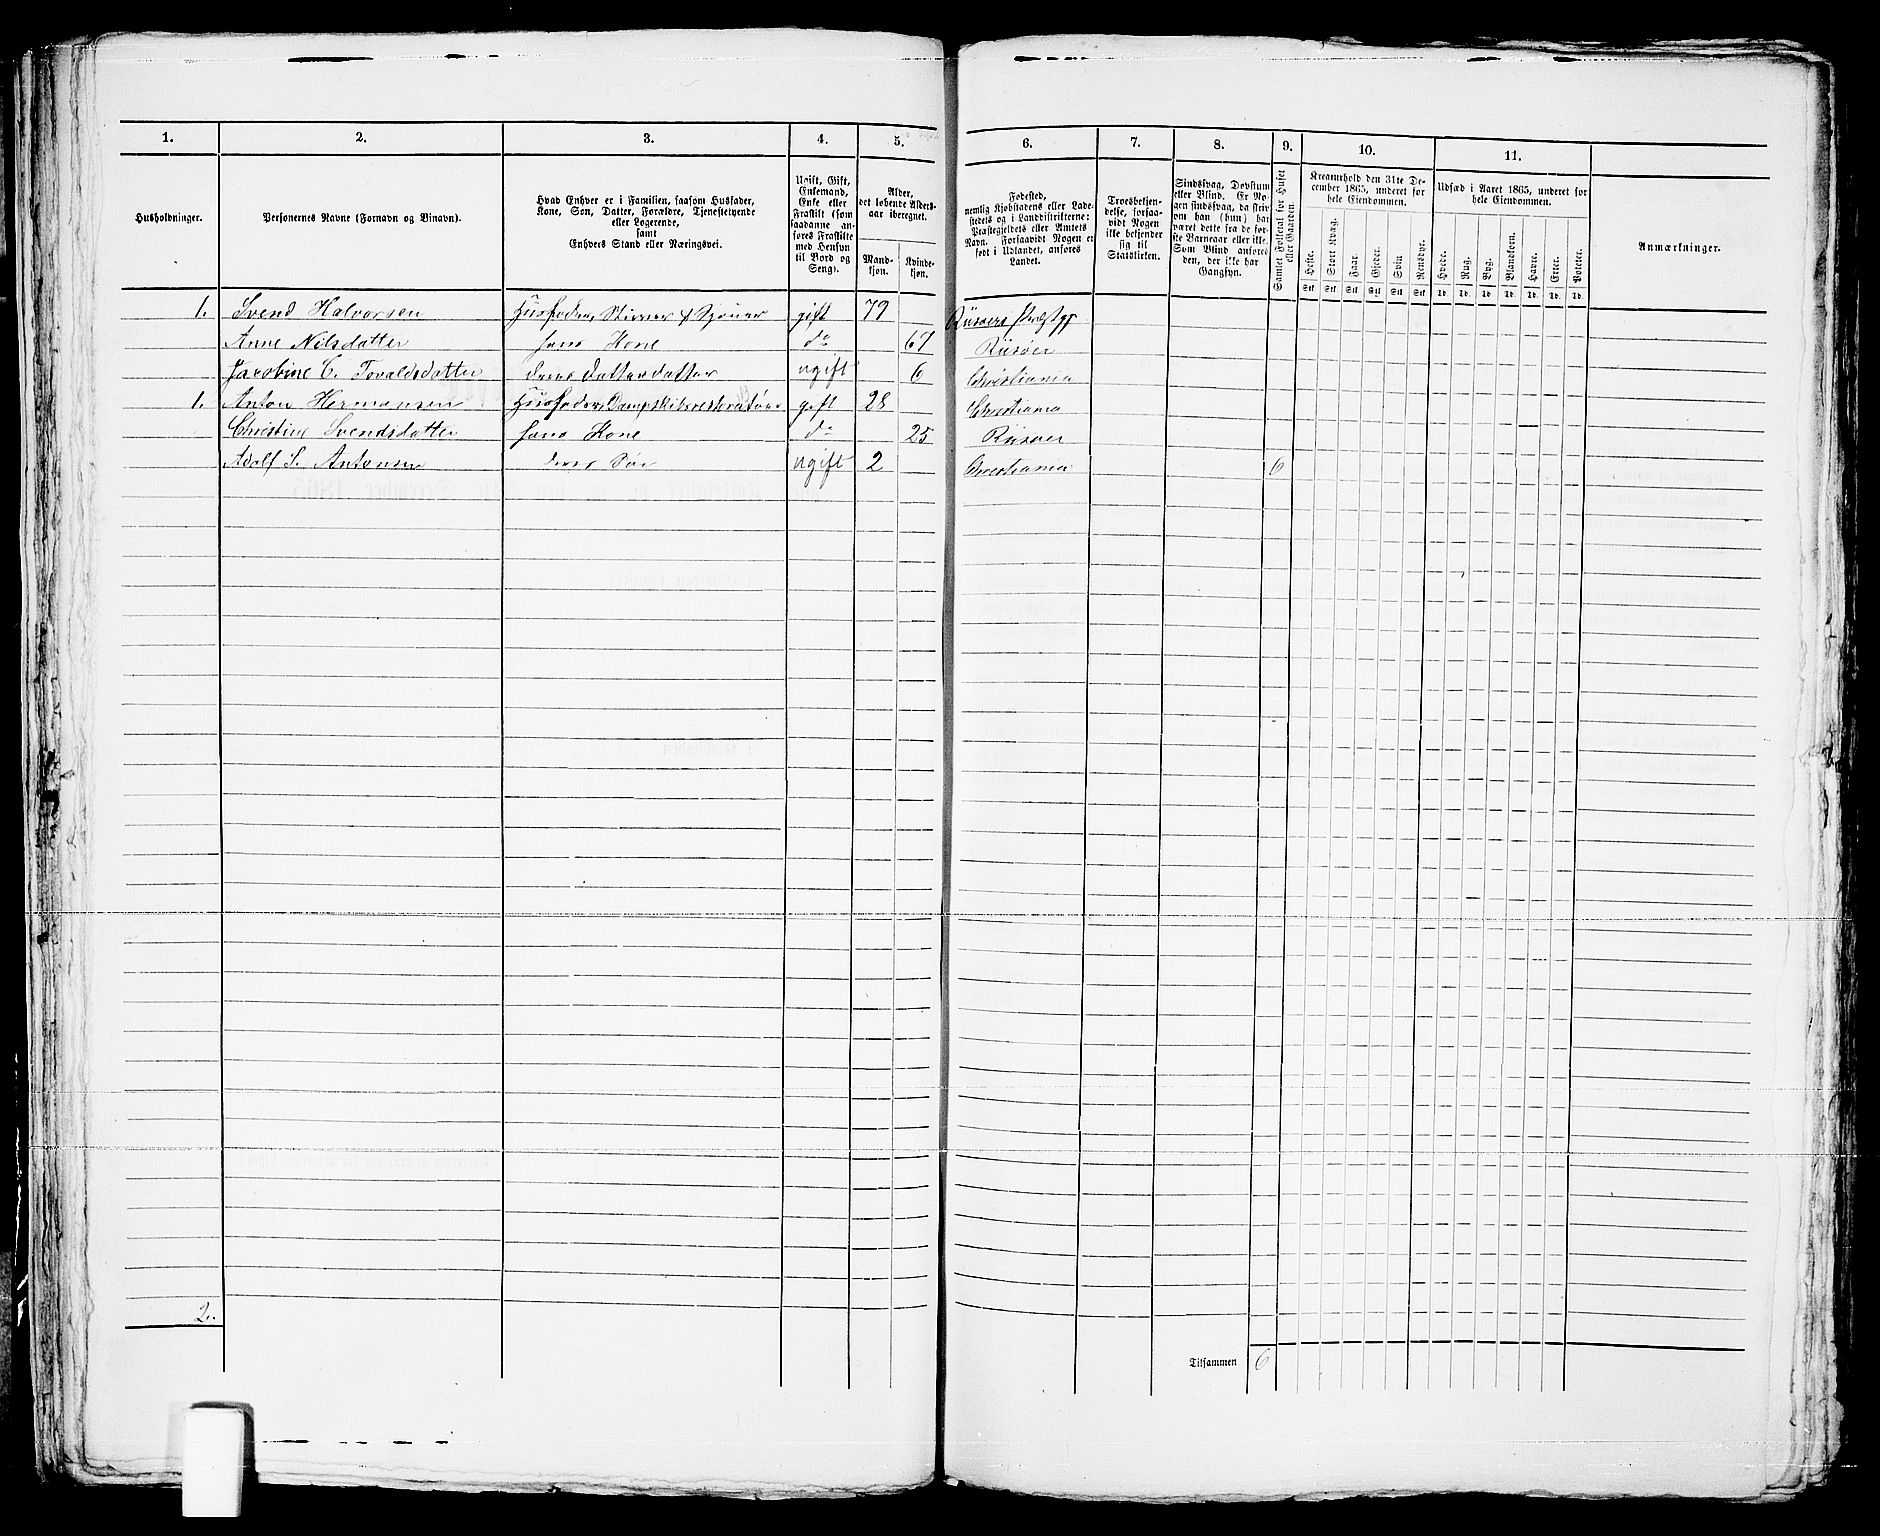 1. 2. 3. 4. 5. 6. 7. 8. 9. 10. 11.
Husholdninger.
Personernes Navne (Fornavn og Binavn).
Hvad Enhver er i Familien, saasom Husfader,
Kone, Søn, Datter, Forældre, Tjenestetyende
eller Logerende,
samt
Enhvers Stand eller Næringsvei.
Ugift, Gift,
Enkemand,
Enke eller
Fraskilt (som
saadanne an-
føres Fraskilte
med Hensyn
til Bord og
Seng).
Alder,
det løbende Alders-
aar iberegnet.
Mand-
kjøn.
Kvinde-
kjøn.
Fødested,
nemlig Kjøbstadens eller Lade-
stedets og i Landdistrikterne:
Præstegjeldets eller Amtets
Navn. Forsaavidt Nogen er
født i Udlandet, anføres
Landet.
Troesbekjen-
delse, forsaa-
vidt Nogen
ikke bekjender
sig til
Statskirken.
Sindssvag, Døvstum
eller Blind. Er No-
gen sindssvag, da skriv
om han (hun) har
været dette fra de før-
ste Barneaar eller ikke.
Som Blind anføres
den, der ikke har
Gangsyn.
Samlet Folketal for Huset
eller Gaarden
Kreaturhold den 31te De-
cember 1865, underet for
hele Eiendommen.
Heste. Stort Kvæg. Faar. Gjeder. Svin Rensdyr.
Stk Stk Stk Stk Stk Stk
Udsæd i Aaret 1865, underet for
hele Eiendommen.
Hvede. Rug. Byg. Blandkorn. Havre. Erter. Poteter.
Td. Td. Td. Td. Td. Td. Td.
Anmærkninger.
1. Svend Halvorsen Husfader, gift 79
Anne Nilsdatter hans Kone do 67 Riisøer
Jacobine C. Tovaldsdatter deres Datterdatter ugift 6 Christiania
1. Anton Hermansen Husfader, Dampskibsrestoratør gift 28 Christiania
Christine Svendsdatter hans Kone do 25 Riisøer
Adolf S. Antonsen deres Søn ugift 2 Christiania 6
2.
Tilsammen 6